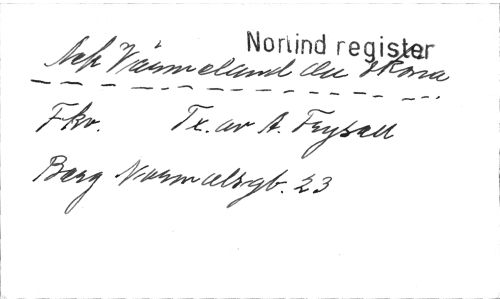 Norlind register
Ack Värmeland du sköna
Fkv. Tx. av A. Fryxell
Berg Normalsgb. 23